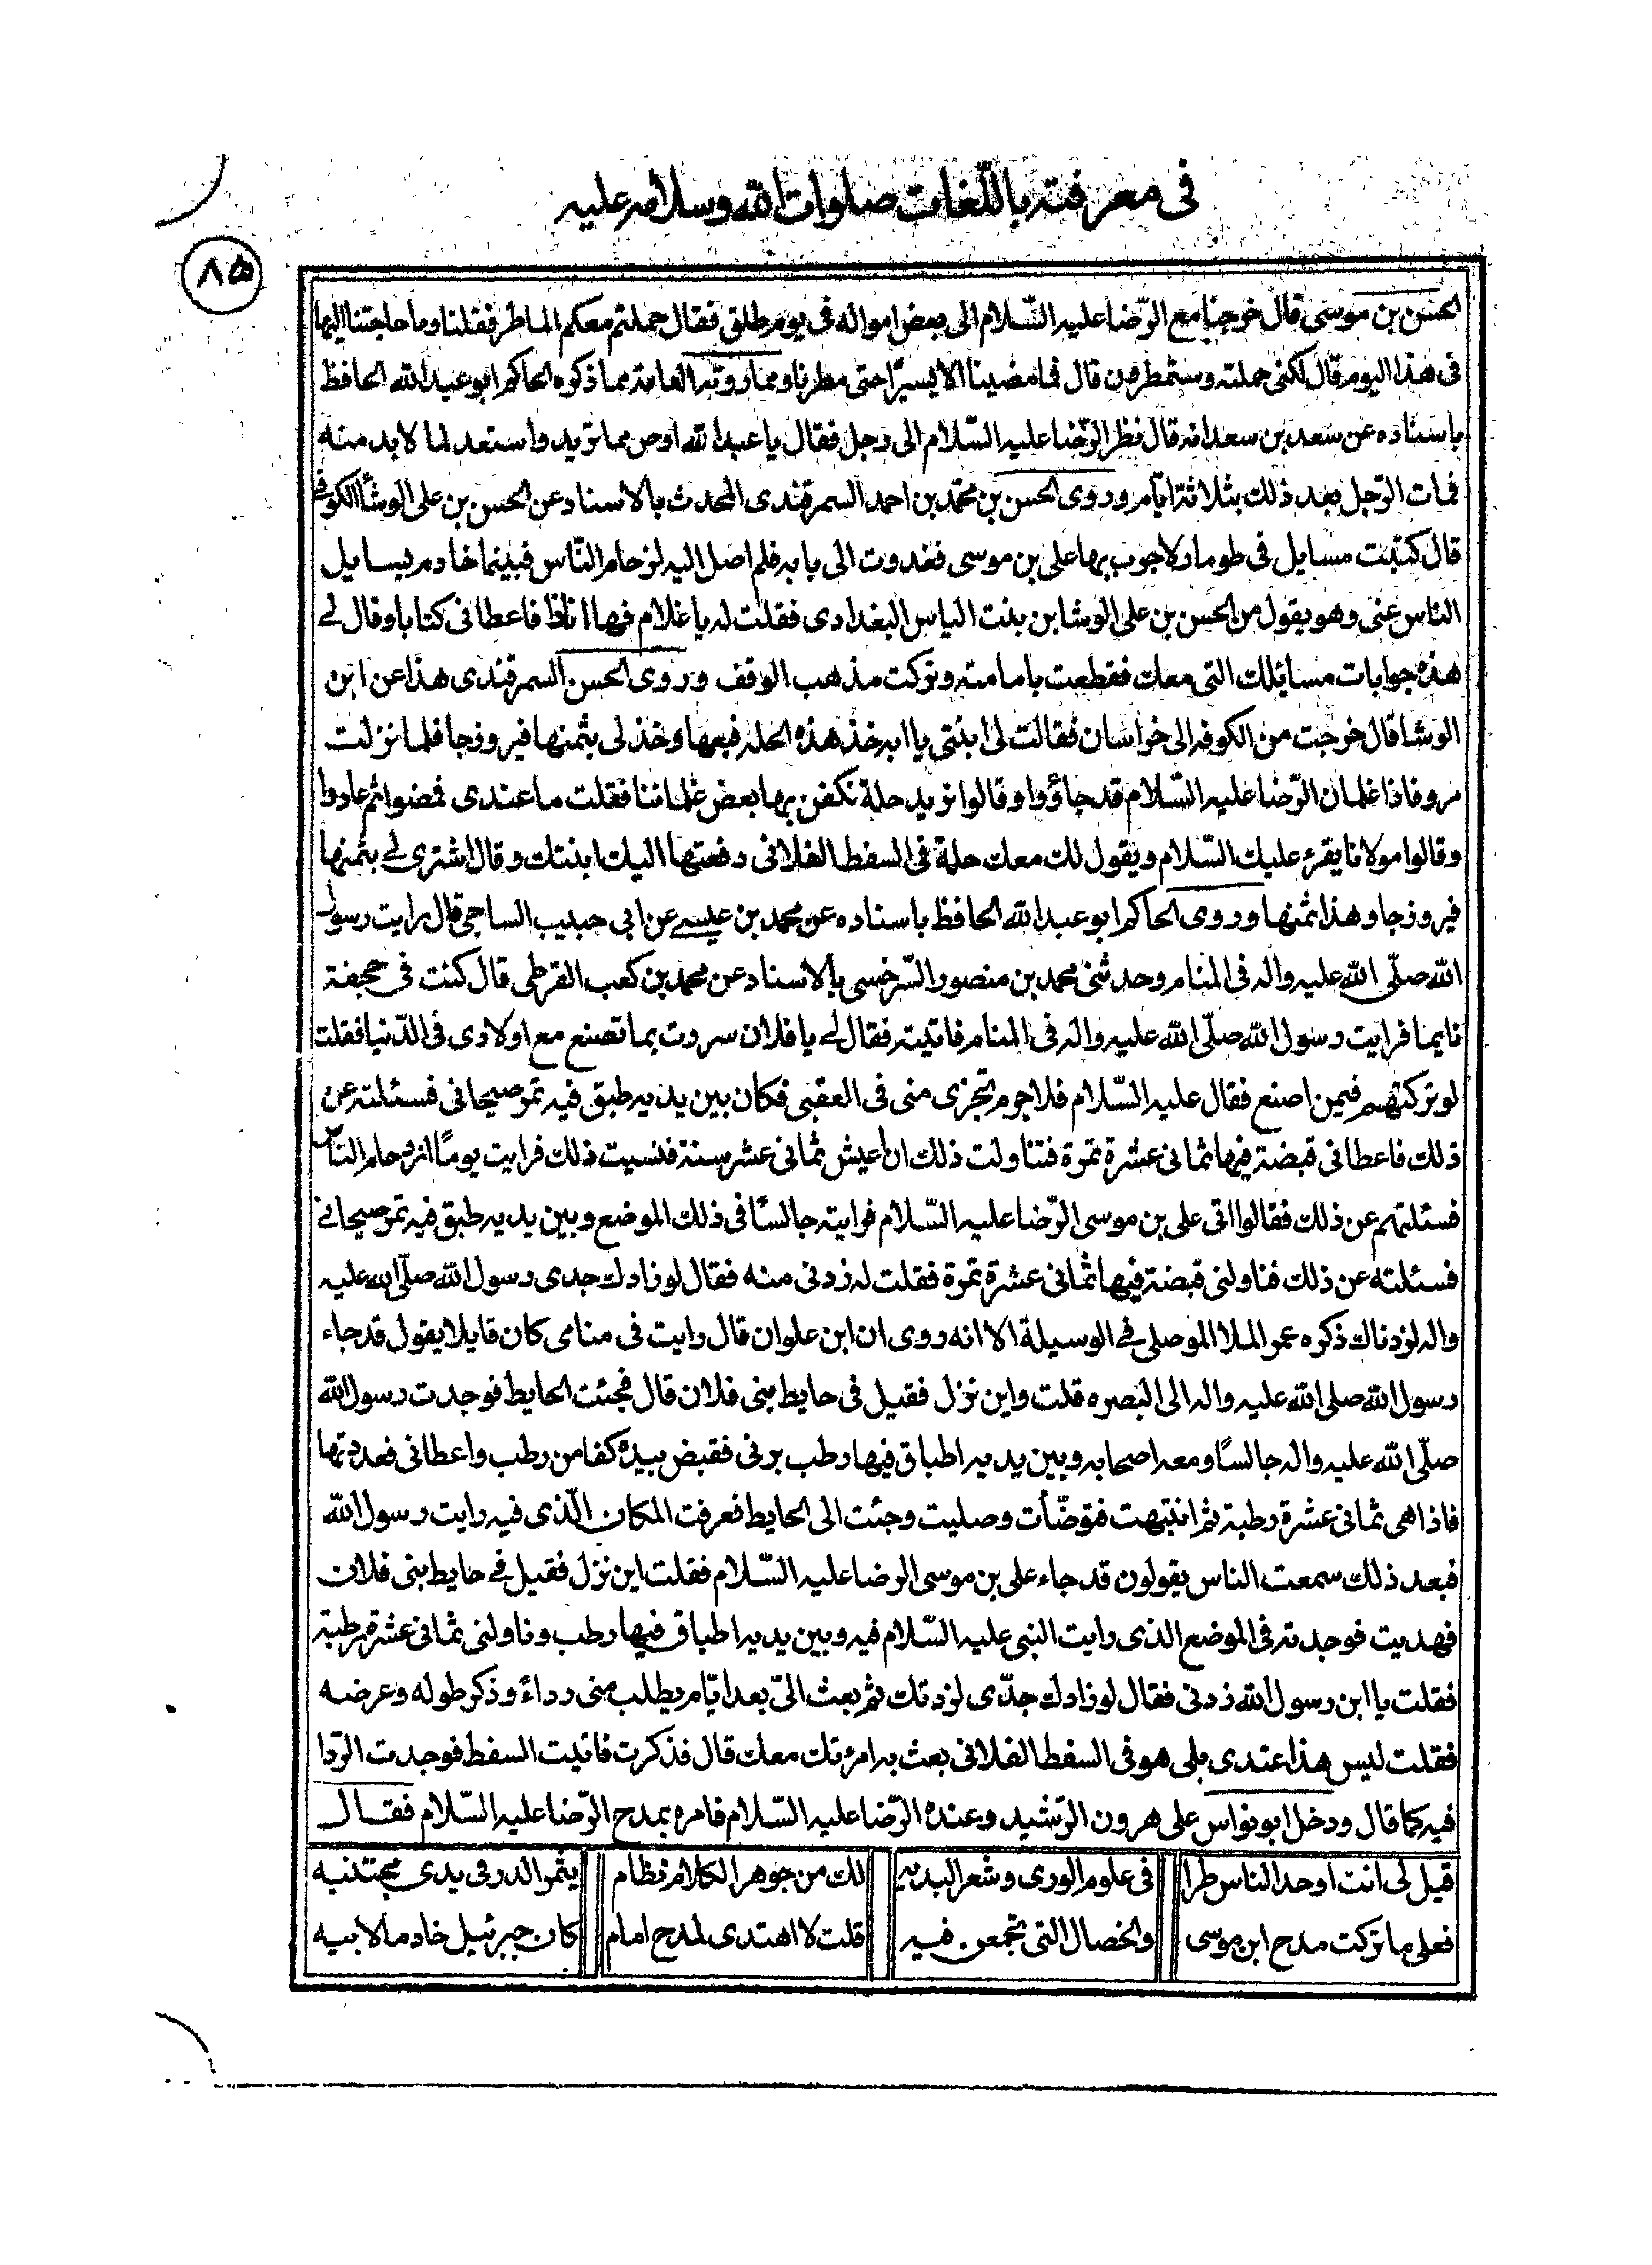 فى معرفته باللّغات صلوات الله وسلامه عليه
٨٥
الحسن بن موسى قال خرجنا مع الرّضا عليه السّلام الى بعض امواله فى يوم طلق فقال حملتم معكم المماطر فقلنا وما حاجتنا اليها
فى هذا اليوم قال لكنى حملته وستمطرون قال فما مضينا الا يسيرًا حتى مطرنا ومما روته العامة مما ذكره الحاكم ابو عبد الله الحافظ
باسناده عن سعد بن سعد انه قال نظر الرّضا عليه السّلام الى رجل فقال يا عبد الله اوص مما تريد واستعد لما لا بد منه
فمات الرّجل بعد ذلك بثلاثة ايّام وروى الحسن بن محمّد بن احمد السمرقندى المحدث بالاسناد عن الحسن بن على الوشّا الكوفى
قال كتبت مسايل فى طومار لاجرب بها على بن موسى فغدوت الى بابه فلم اصل اليه لزحام النّاس فبينما خادم يسايل
الناس عنى وهو يقول من الحسن بن على الوشا بن بنت الياس البغدادى فقلت له يا غلام فها انا ذا فاعطانى كتابا وقال لى
هذه جوابات مسايلك التى معك فقطعت بامامته وتركت مذهب الوقف وروى الحسن السمرقندى هذا عن ابن
الوشا قال خرجت من الكوفه الى خراسان فقالت لى ابنتى يا ابه خذ هذه الحله فبعها وخذ لى بثمنها فيروزجا فلما نزلت
مرو فاذا غلمان الرّضا عليه السّلام قد جاؤوا وقالوا نريد حلة نكفن بها بعض غلماننا فقلت ما عندى فمضوا ثم عادوا
وقالوا مولانا يقرء عليك السّلام ويقول لك معك حلة فى السفط الفلانى دفعتها اليك ابنتك وقال اشترى لى بثمنها
فيروزجا وهذا ثمنها وروى الحاكم ابو عبد الله الحافظ باسناده عن محمد بن عيسى عن ابى حبيب الساجى قال رايت رسول
الله صلّى الله عليه واله فى المنام وحدثنى محمد بن منصور السّرخسى بالاسناد عن محمد بن كعب القرطى قال كنت فى جحفة
نايما فرايت رسول الله صلّى الله عليه واله فى المنام فاتيته فقال لى يا فلان سررت بما تصنع مع اولادى فى الدّنيا فقلت
لو تركتهم فبمن اصنع فقال عليه السّلام فلا جرم تجزى منى فى العقبى فكان بين يديه طبق فيه تمر صيحانى فسئلته عن
ذلك فاعطانى قبضة فيها ثمانى عشرة تمرة فتناولت ذلك ان اعيش ثمانى عشر سنة فنسيت ذلك فرايت يومًا ازدحام النّاس
فسئلتهم عن ذلك فقالوا اتى على بن موسى الرّضا عليه السّلام فرايته جالسًا فى ذلك الموضع وبين يديه طبق فيه تمر صيحانى
فسئلته عن ذلك فناولنى قبضة فيها ثمانى عشرة تمرة فقلت له زدنى منه فقال لو زادك جدى رسول الله صلّى الله عليه
واله لزدناك ذكره عمر الملا الموصلى فى الوسيلة الا انه روى ان ابن علوان قال رايت فى منامى كان قايلا يقول قد جاء
رسول الله صلى الله عليه واله الى البصره قلت واين نزل فقيل فى حايط بنى فلان قال فجئت الحايط فوجدت رسول الله
صلّى الله عليه واله جالسًا ومعه اصحابه وبين يديه اطباق فيها رطب برنى فقبض بيده كفا من رطب واعطانى فعددتها
فاذا هى ثمانى عشرة رطبة ثم انتبهت فتوضّأت وصليت وجئت الى الحايط فعرفت المكان الّذى فيه رايت رسول الله
فبعد ذلك سمعت الناس يقولون قد جاء على بن موسى الرضا عليه السّلام فقلت اين نزل فقيل فى حايط بنى فلان
فهديت فوجدته فى الموضع الذى رايت النبى عليه السّلام فيه وبين يديه اطباق فيها رطب وناولنى ثمانى عشرة رطبة
فقلت يا ابن رسول الله زدنى فقال لو زادك جدّى لزدتك ثم بعث الىّ بعد ايّام يطلب منى رداءً وذكر طوله وعرضه
فقلت ليس هذا عندى بلى هو فى السفط الفلانى بعث به امرءتك معك قال فذكرت فاتيت السفط فوجدت الرّدا
فيه كما قال ودخل ابو نواس على هرون الرّشيد وعنده الرّضا عليه السّلام فامره بمدح الرّضا عليه السّلام فقال
قيل لى انت اوحد الناس طرا فى علوم الورى وشعر البديه لك من جوهر الكلام نظام يثمر الدر فى يدى مجتنيه
فعلى ما تركت مدح ابن موسى والخصال التى تجمعن فيه قلت لا اهتدى لمدح امام كان جبرئيل خادما لابيه